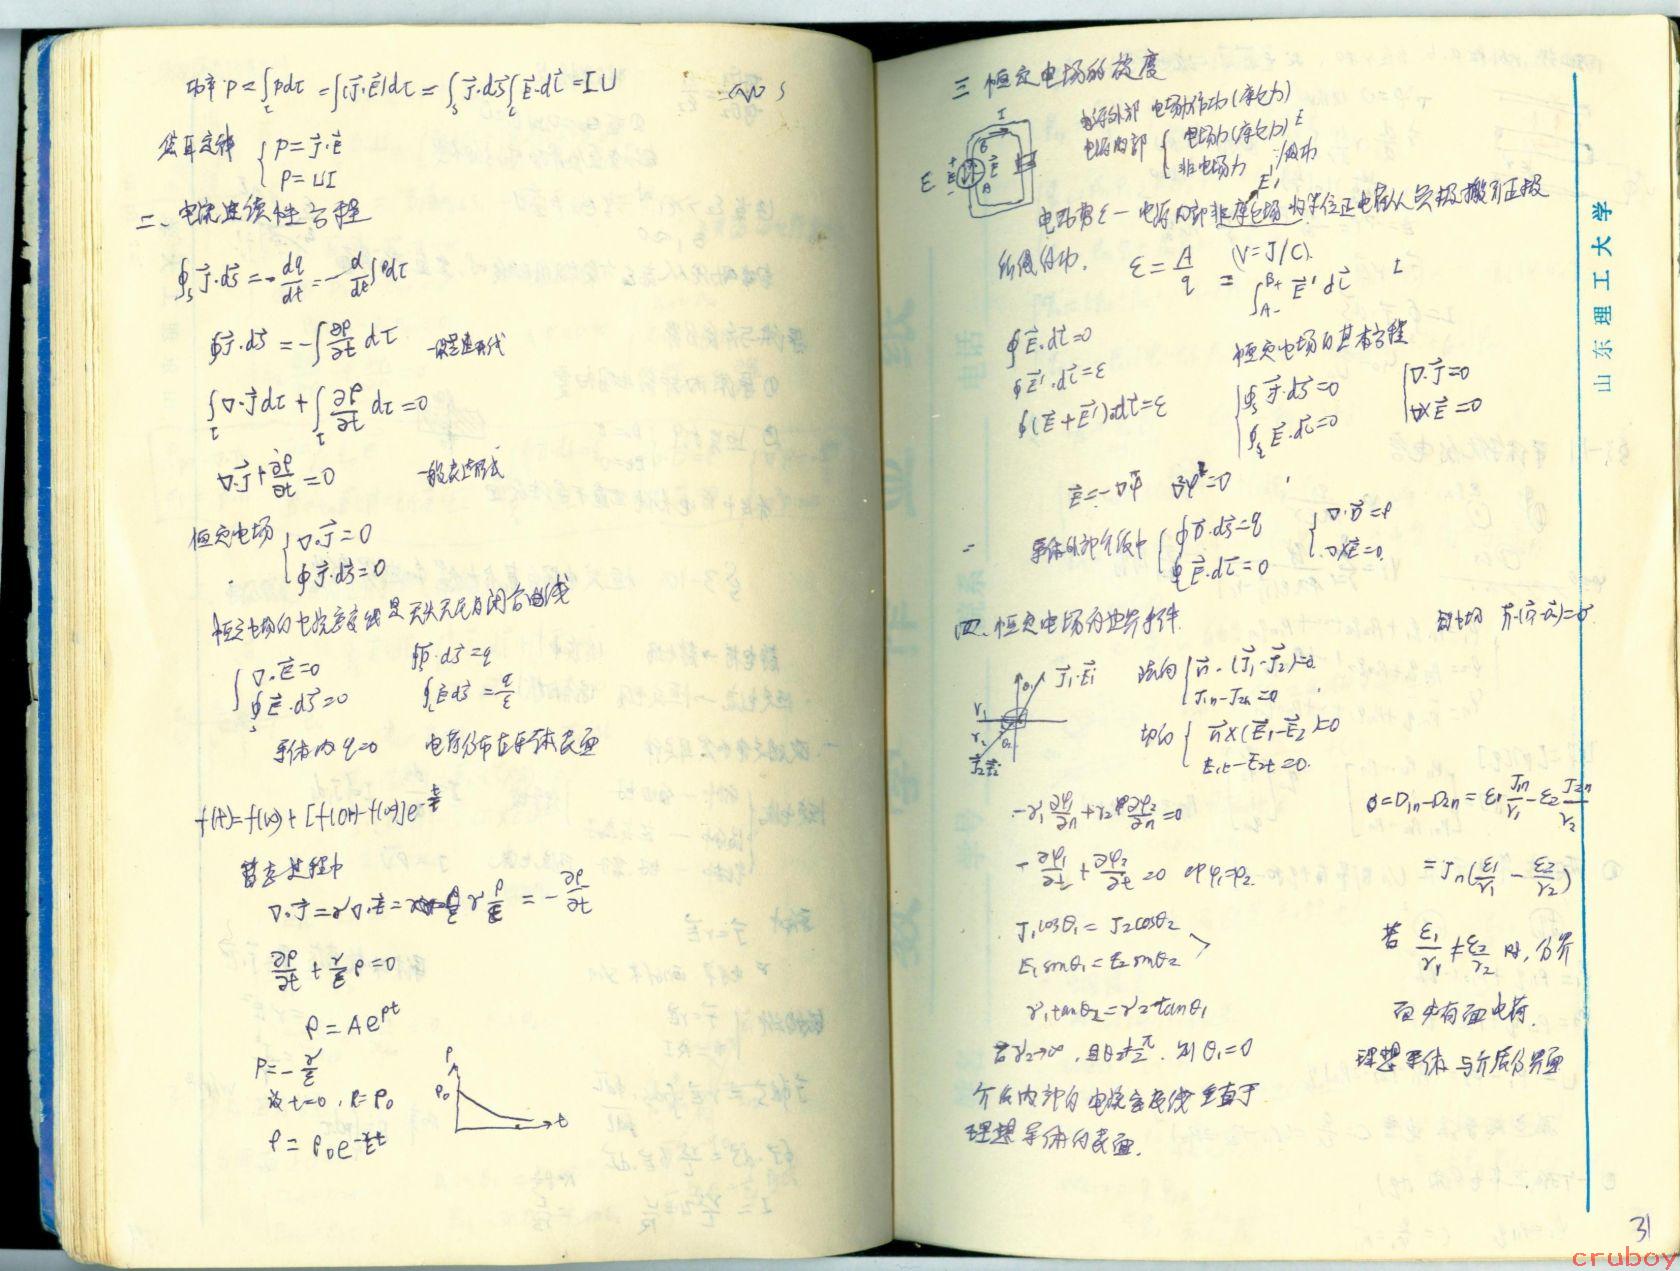 功率 P = ∫_τ p dτ = ∫(J⃗·E⃗)dτ = ∫_S J⃗·dS⃗ ∫_l E⃗·dl⃗ = IU
焦耳定律 { p = J⃗·E⃗
P = UI
二、电流连续性方程
∮_S J⃗·dS⃗ = -dq/dt = -d/dt ∫ρdτ
∮J⃗·dS⃗ = -∫∂ρ/∂t dτ
∫_τ ∇·J⃗dτ + ∫_τ ∂ρ/∂t dτ = 0
∇·J⃗ + ∂ρ/∂t = 0
恒定电场 { ∇·J⃗ = 0
∮J⃗·dS⃗ = 0
恒定电场的电流密度线是无头无尾的闭合曲线
{ ∇·E⃗ = 0 ∮D⃗·dS⃗ = q
∮_S E⃗·dS⃗ = 0 ∮E⃗dS⃗ = q/ε
导体内 q=0 电荷分布在导体表面
f(t) = f(∞) + [f(0+) - f(∞)]e^{-t/τ}
暂态过程中
∇·J⃗ = γ∇·E⃗ = γ ρ/ε = -∂ρ/∂t
∂ρ/∂t + γ/ε ρ = 0
ρ = Ae^{pt}
P = -γ/ε
设 t=0, ρ=ρ₀
ρ = ρ₀e^{-γ/ε t}
ρ ρ₀ t
三 恒定电场的
电源外部 电场力作功(库仑力) E
电源内部 { 电场力(库仑力)
非电场力 E' 做功
I B E⃗ A ε
电动势ε一电源内部非库仑场将单位正电荷从负极搬到正极
所做的功. ε = A/q (V=J/C)
= ∫_{A-}^{B+} E⃗'dl⃗
∮E⃗·dl⃗ = 0
∮E⃗'·dl⃗ = ε
∮(E⃗+E⃗')·dl⃗ = ε
恒定电场的基本方程
{ ∮_S J⃗·dS⃗ = 0 { ∇·J⃗ = 0
∮_l E⃗·dl⃗ = 0 ∇×E⃗ = 0
E⃗ = -∇φ ∇²φ = 0
导体外部介质中 { ∮D⃗·dS⃗ = q { ∇·D⃗ = ρ
∮E⃗·dl⃗ = 0 ∇×E⃗ = 0
四、恒定电场的边界条件.
J⃗₁·E⃗₁ γ₁ γ₂ J⃗₂E⃗₂
法向 { n⃗·(J⃗₁-J⃗₂)=0
J₁ₙ-J₂ₙ=0
切向 { n⃗×(E⃗₁-E⃗₂)=0
E₁t-E₂t=0.
-γ₁ ∂φ₁/∂n + γ₂ ∂φ₂/∂n = 0
-∂φ₁/∂t + ∂φ₂/∂t = 0 即φ₁=φ₂.
J₁cosθ₁ = J₂cosθ₂
E₁sinθ₁ = E₂sinθ₂
γ₁tanθ₂ = γ₂tanθ₁
若γ₂→∞, 且θ₂≠π/2, 则θ₁=0
介质内部的电流密度线垂直于
理想导体的表面.
σ = D₁ₙ-D₂ₙ = ε₁ Jₙ/γ₁ - ε₂ J₂ₙ/γ₂
= Jₙ(ε₁/γ₁ - ε₂/γ₂)
若 ε₁/γ₁ ≠ ε₂/γ₂ 时, 分界
面也有面电荷.
理想导体与介质分界面
山东理工大学
31
cruboy